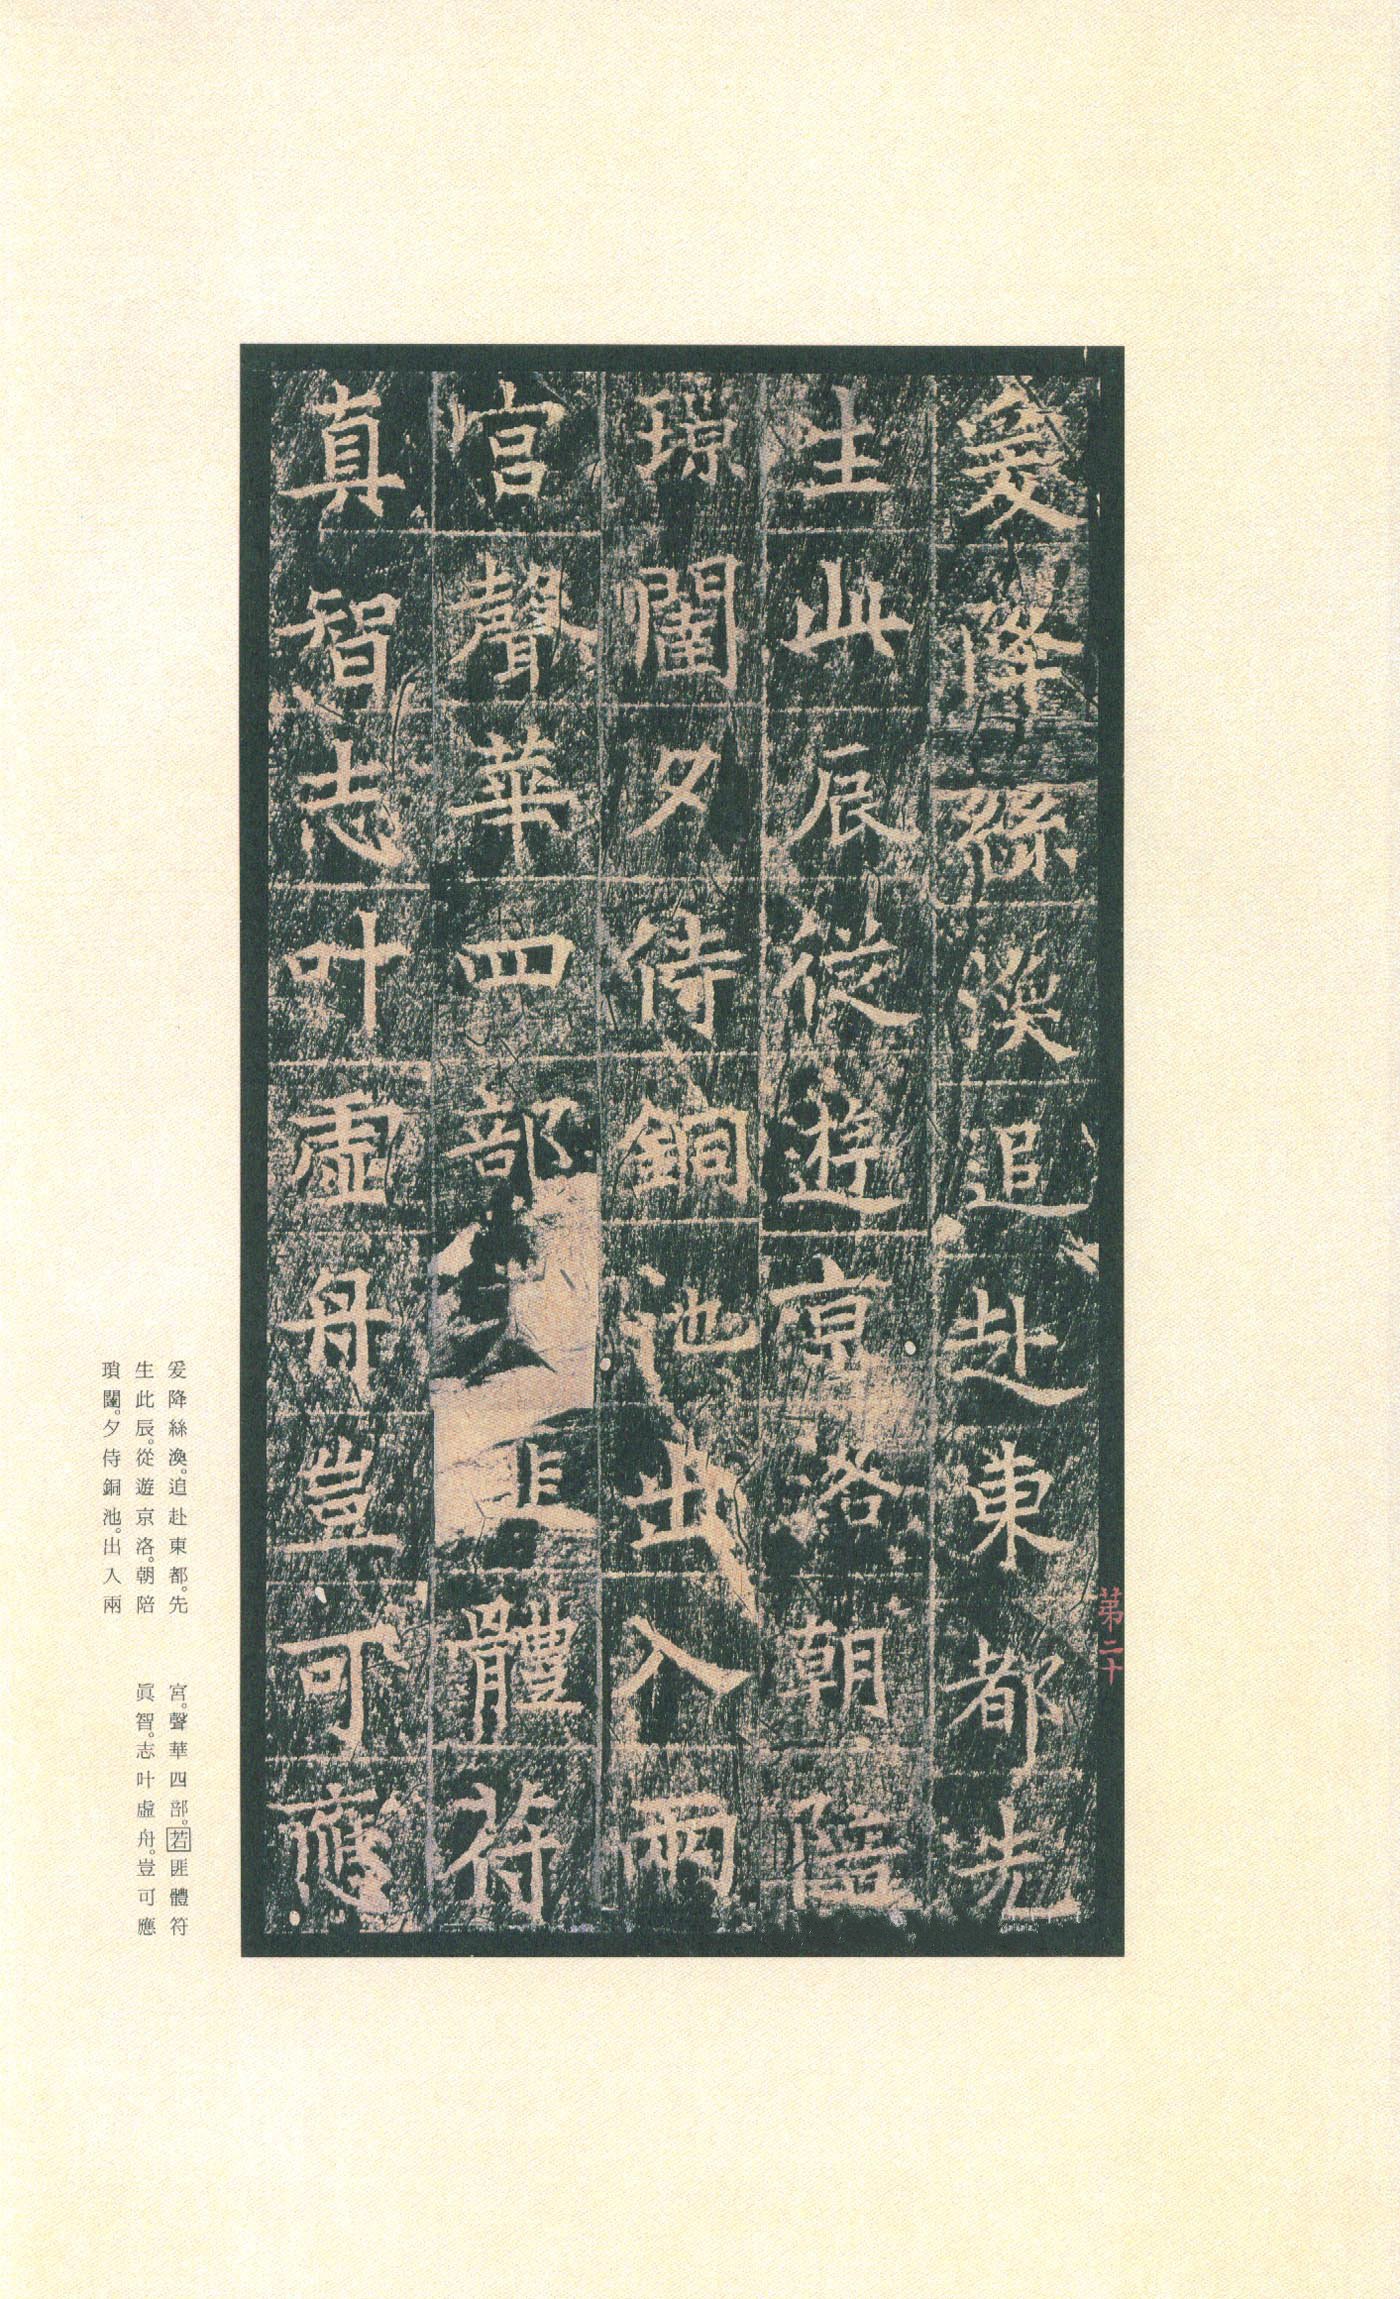 爰降絲渙追赴東都先
生此辰從遊京洛朝陪
瑣闈夕侍銅池出入兩
宮聲華四部匪體符
真智志叶虛舟豈可應
第二十
爰降絲渙。追赴東都。先
生此辰。從遊京洛。朝陪
瑣闈。夕侍銅池。出入兩
宮。聲華四部。若匪體符
眞智。志叶虛舟。豈可應